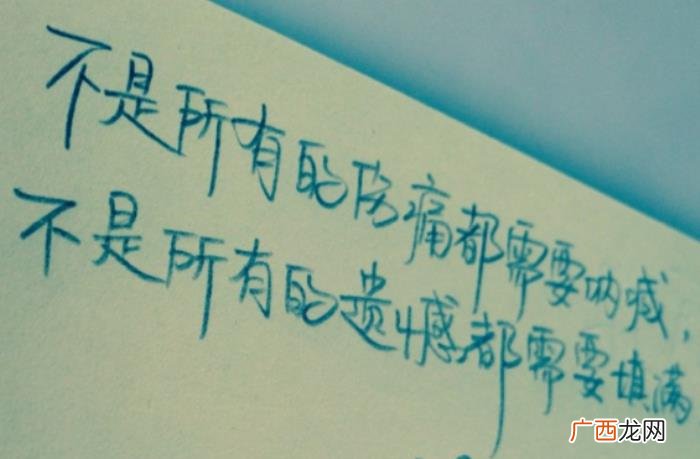 不是所有的伤痛都需要呐喊，
不是所有的遗憾都需要填满
广西龙网